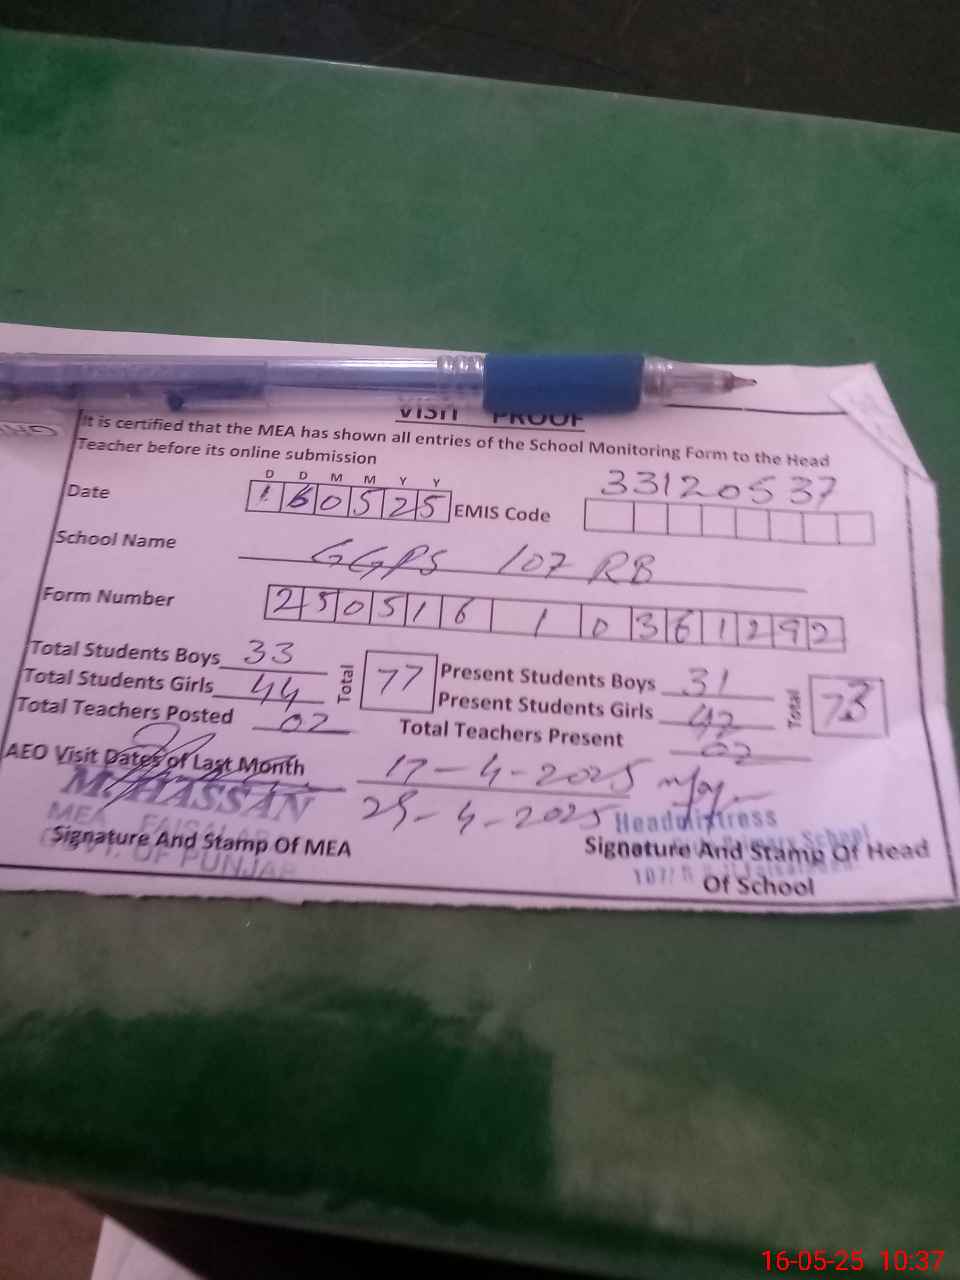 VISIT PROOF
It is certified that the MEA has shown all entries of the School Monitoring Form to the Head
Teacher before its online submission
D D M M Y Y
Date 160525 EMIS Code 33120537
School Name GGPS 107 RB
Form Number 250516 1 0361292
Total Students Boys 33 Total 77 Present Students Boys 31 Total 73
Total Students Girls 44 Present Students Girls 42
Total Teachers Posted 02 Total Teachers Present 02
AEO Visit Dates of Last Month 17-4-2025
29-4-2025
M. HASSAN
MEA FAISALAB
GOVT. OF PUNJAB
Signature And Stamp Of MEA
Headmistress
Primary School
107/ R.B
Signature And Stamp Of Head
Of School
16-05-25 10:37